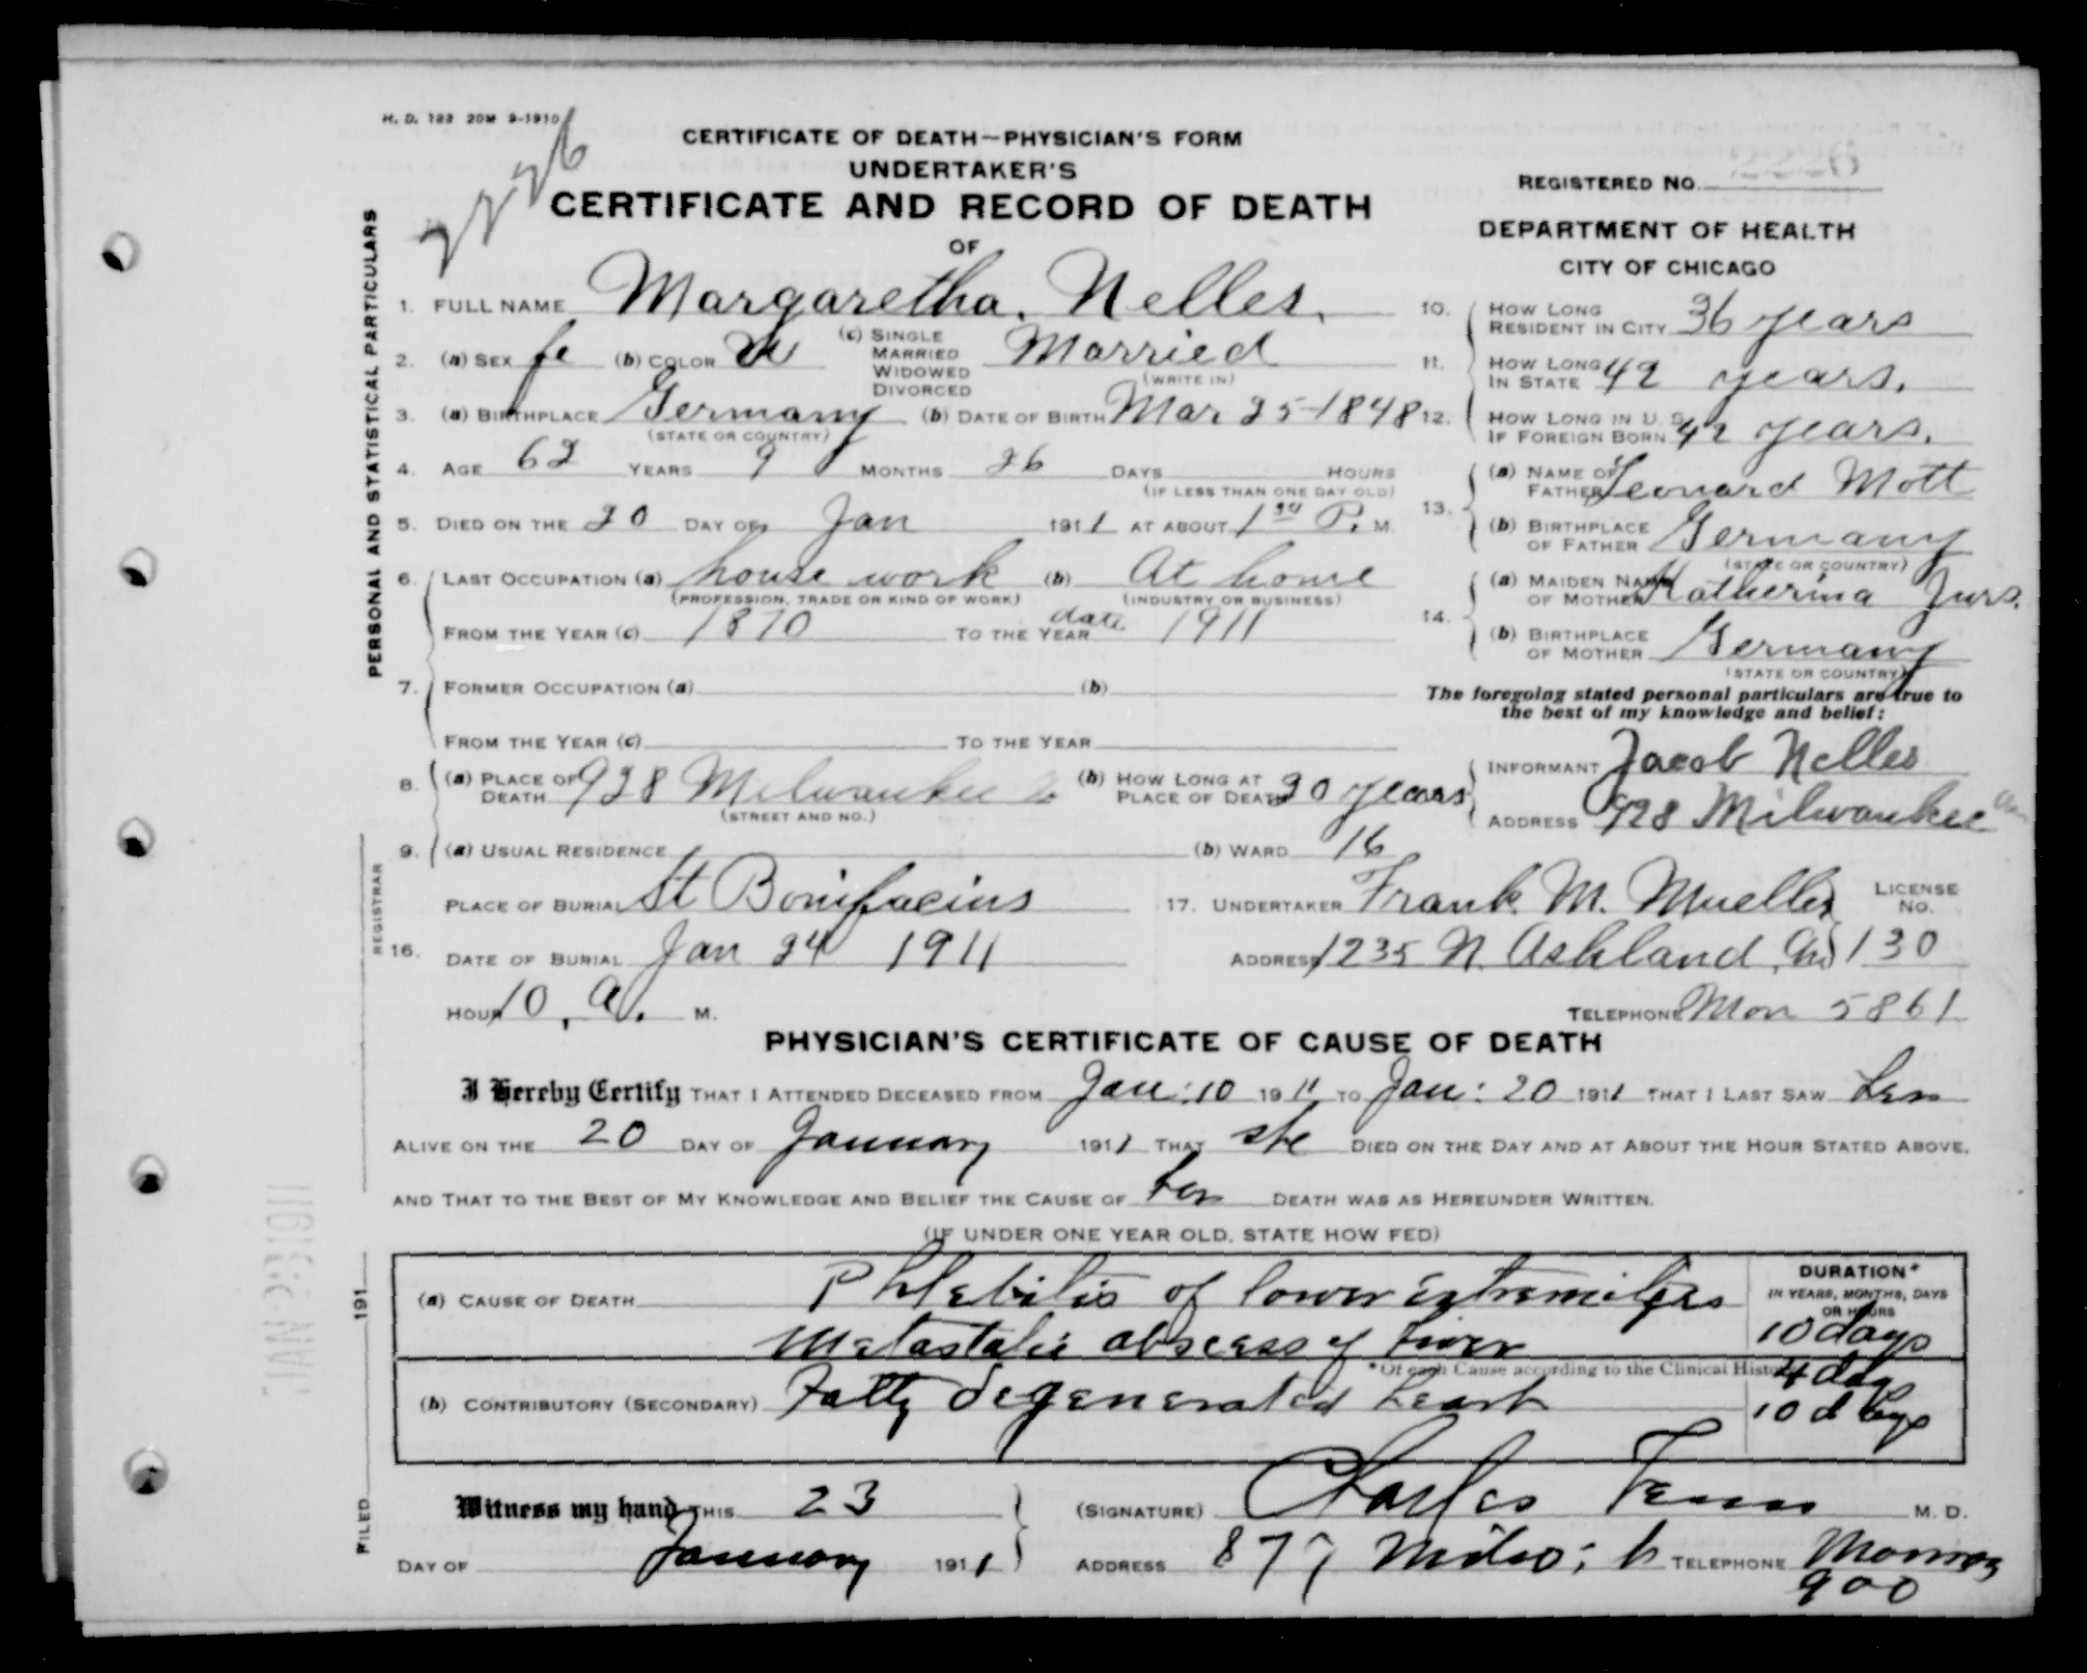 H. D. 183 20M 9-1910
2226
CERTIFICATE OF DEATH—PHYSICIAN'S FORM
UNDERTAKER'S
CERTIFICATE AND RECORD OF DEATH
OF
REGISTERED NO.
DEPARTMENT OF HEALTH
CITY OF CHICAGO
PERSONAL AND STATISTICAL PARTICULARS
1. FULL NAME Margaretha. Nelles.
2. (a) SEX fe (b) COLOR W (c) SINGLE MARRIED WIDOWED DIVORCED Married
(WRITE IN)
3. (a) BIRTHPLACE Germany (b) DATE OF BIRTH Mar 25-1848
(STATE OR COUNTRY)
4. AGE 62 YEARS 9 MONTHS 26 DAYS HOURS
(IF LESS THAN ONE DAY OLD)
5. DIED ON THE 20 DAY OF Jan 1911 AT ABOUT 1 30 P. M.
6. LAST OCCUPATION (a) house work (b) At home
(PROFESSION, TRADE OR KIND OF WORK) (INDUSTRY OR BUSINESS)
FROM THE YEAR (c) 1870 TO THE YEAR date 1911
7. FORMER OCCUPATION (a) (b)
FROM THE YEAR (c) TO THE YEAR
8. (a) PLACE OF DEATH 928 Milwaukee (b) HOW LONG AT PLACE OF DEATH 20 years
(STREET AND NO.)
9. (a) USUAL RESIDENCE (b) WARD 16
10. HOW LONG RESIDENT IN CITY 36 years
11. HOW LONG IN STATE 42 years.
12. HOW LONG IN U. S. IF FOREIGN BORN 42 years.
13. (a) NAME OF FATHER Leonard Mott
(b) BIRTHPLACE OF FATHER Germany
(STATE OR COUNTRY)
14. (a) MAIDEN NAME OF MOTHER Katherina Jurs.
(b) BIRTHPLACE OF MOTHER Germany
(STATE OR COUNTRY)
The foregoing stated personal particulars are true to
the best of my knowledge and belief:
INFORMANT Jacob Nelles
ADDRESS 928 Milwaukee Av
REGISTRAR
PLACE OF BURIAL St Bonifacius
16. DATE OF BURIAL Jan 24 1911
HOUR 10, A. M.
17. UNDERTAKER Frank M. Mueller LICENSE No.
ADDRESS 1235 N. Ashland Av 130
TELEPHONE Mon 5861
PHYSICIAN'S CERTIFICATE OF CAUSE OF DEATH
I Hereby Certify THAT I ATTENDED DECEASED FROM Jan: 10 1911 TO Jan: 20 1911 THAT I LAST SAW her
ALIVE ON THE 20 DAY OF January 1911 THAT she DIED ON THE DAY AND AT ABOUT THE HOUR STATED ABOVE,
AND THAT TO THE BEST OF MY KNOWLEDGE AND BELIEF THE CAUSE OF her DEATH WAS AS HEREUNDER WRITTEN.
(IF UNDER ONE YEAR OLD, STATE HOW FED)
JAN 23 1911
(a) CAUSE OF DEATH Phlebitis of lower extremities
metastatic abscess of liver
DURATION*
IN YEARS, MONTHS, DAYS
OR HOURS
10 days
*Of each Cause according to the Clinical History
4 days
(b) CONTRIBUTORY (SECONDARY) Fatty degenerated heart 10 days
FILED 191
Witness my hand THIS 23
DAY OF January 1911
(SIGNATURE) Charles M. D.
ADDRESS 877 Milw: TELEPHONE Monroe
900